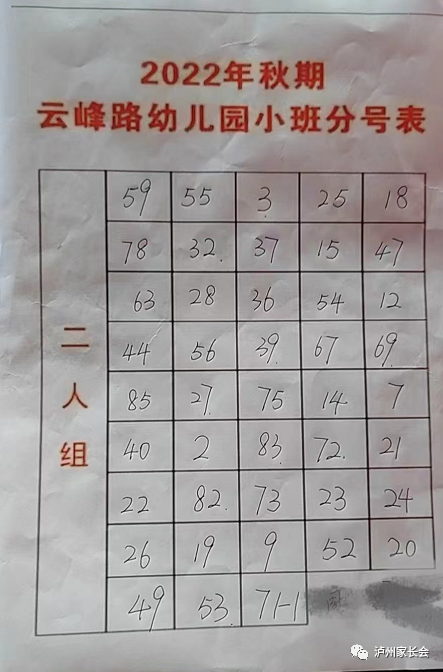 2022年秋期
云峰路幼儿园小班分号表
二人组
59 55 3 25 18
78 32. 37 15 47
63 28 36 54 12
44 56 39. 67 69.
85 27. 75 14 7
40 2 83. 72. 21
22 82. 73 23 24
26 19 9 52 20
49 53. 71-1
泸州家长会